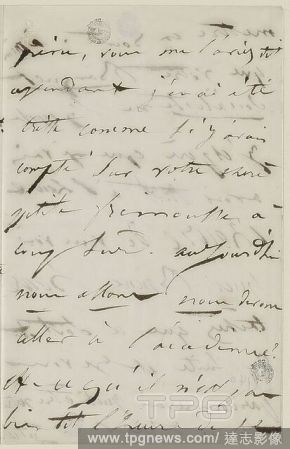 frère, vous me l'aviez dit
cependant j'en ai été
triste comme si j'y avais
compté sur votre chère
petite frimousse à
coup sûr. aujourd'hui
nous allons nous devons
aller à l'académie.
il n'est
bien tôt l'heure de
TPG
www.tpgnews.com / 達志影像